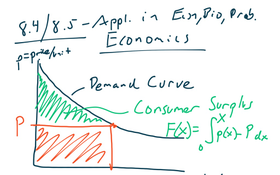 8.4/8.5 - Appl. in Econ, Bio, Prob.
Economics
p=price/unit
Demand Curve
Consumer Surplus
P
F(x) = ∫₀ˣ p(x) - P dx